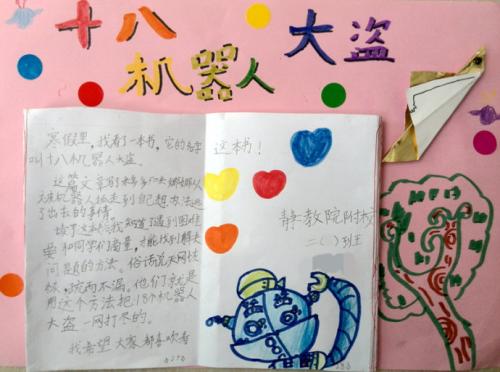 十八
大盗
机器人
寒假里，我看了一本书，它的名字
叫十八机器人大盗。
这篇文章
机器人抓走到自己想办法逃
了出去的事情。
读了这本书我知道了遇到困难
要和同学们商量，才能找到解决
问题的方法。俗话说天网恢
恢，疏而不漏。他们就是
用这个方法把18个机器人
大盗一网打尽的。
我希望大家都喜欢看
这本书！
静教院附校
二（1）班王